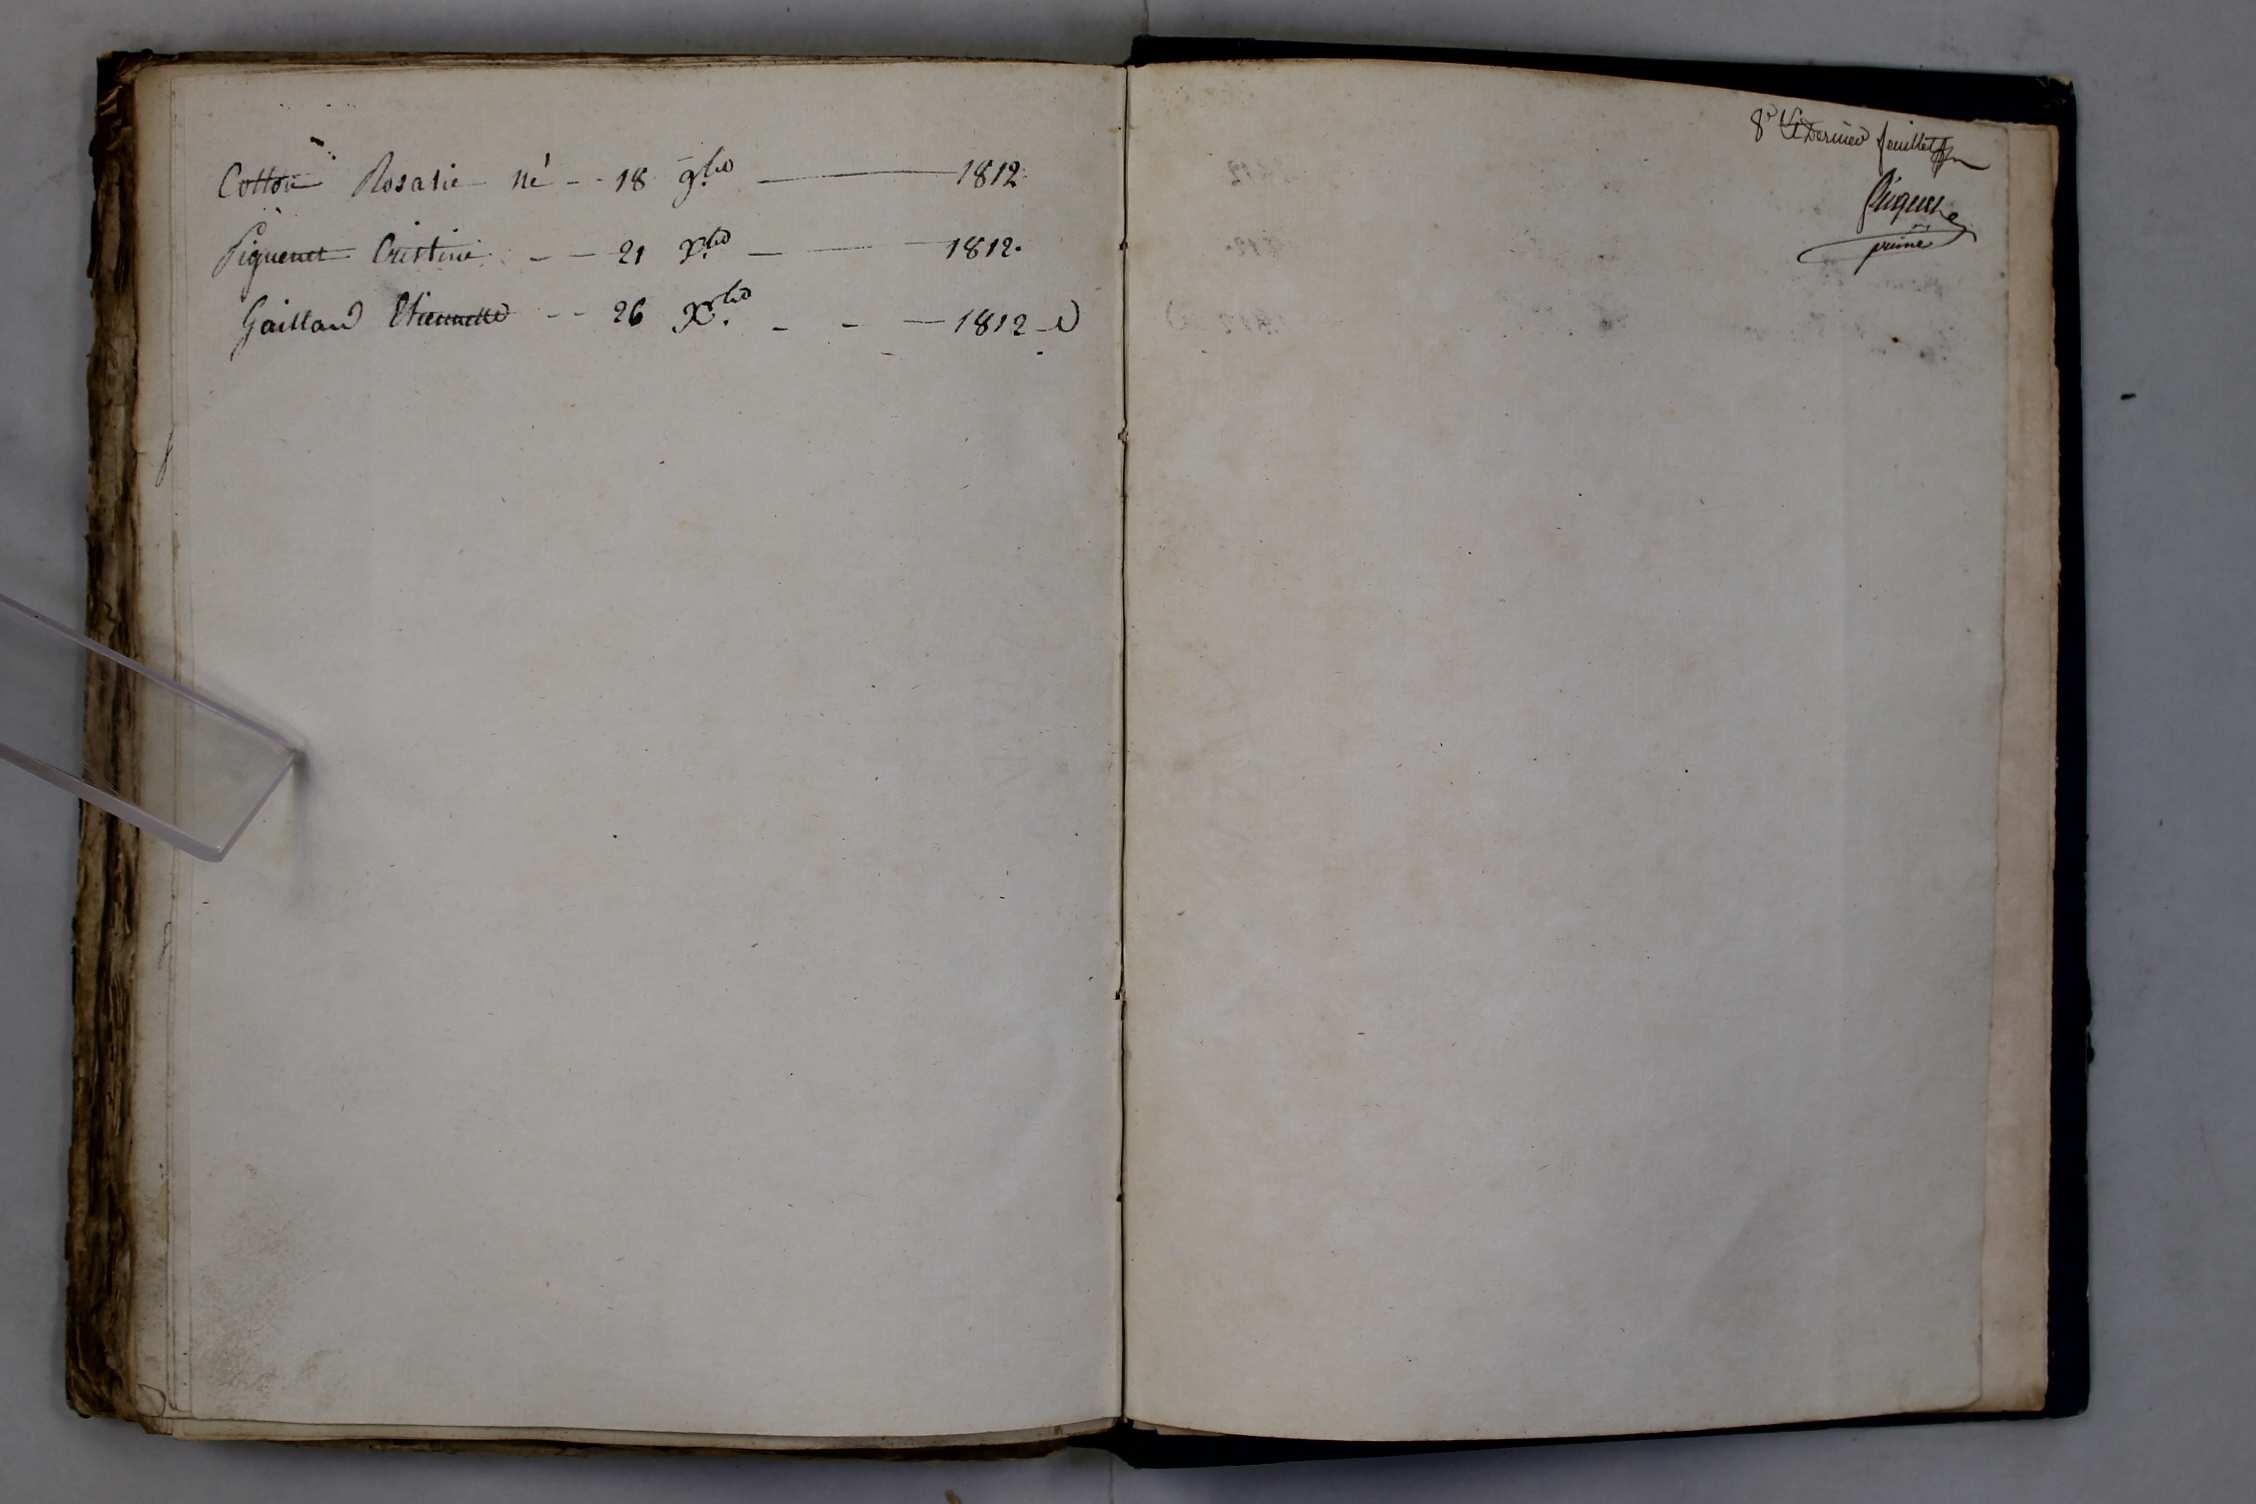 Cotton Rosalie né - - 18 9.bre — 1812.
Piguenet Cristine - - 21 X.bre — 1812.
Gaillard Etiennette - - 26 X.bre - - — 1812
8e et Dernier feuillet